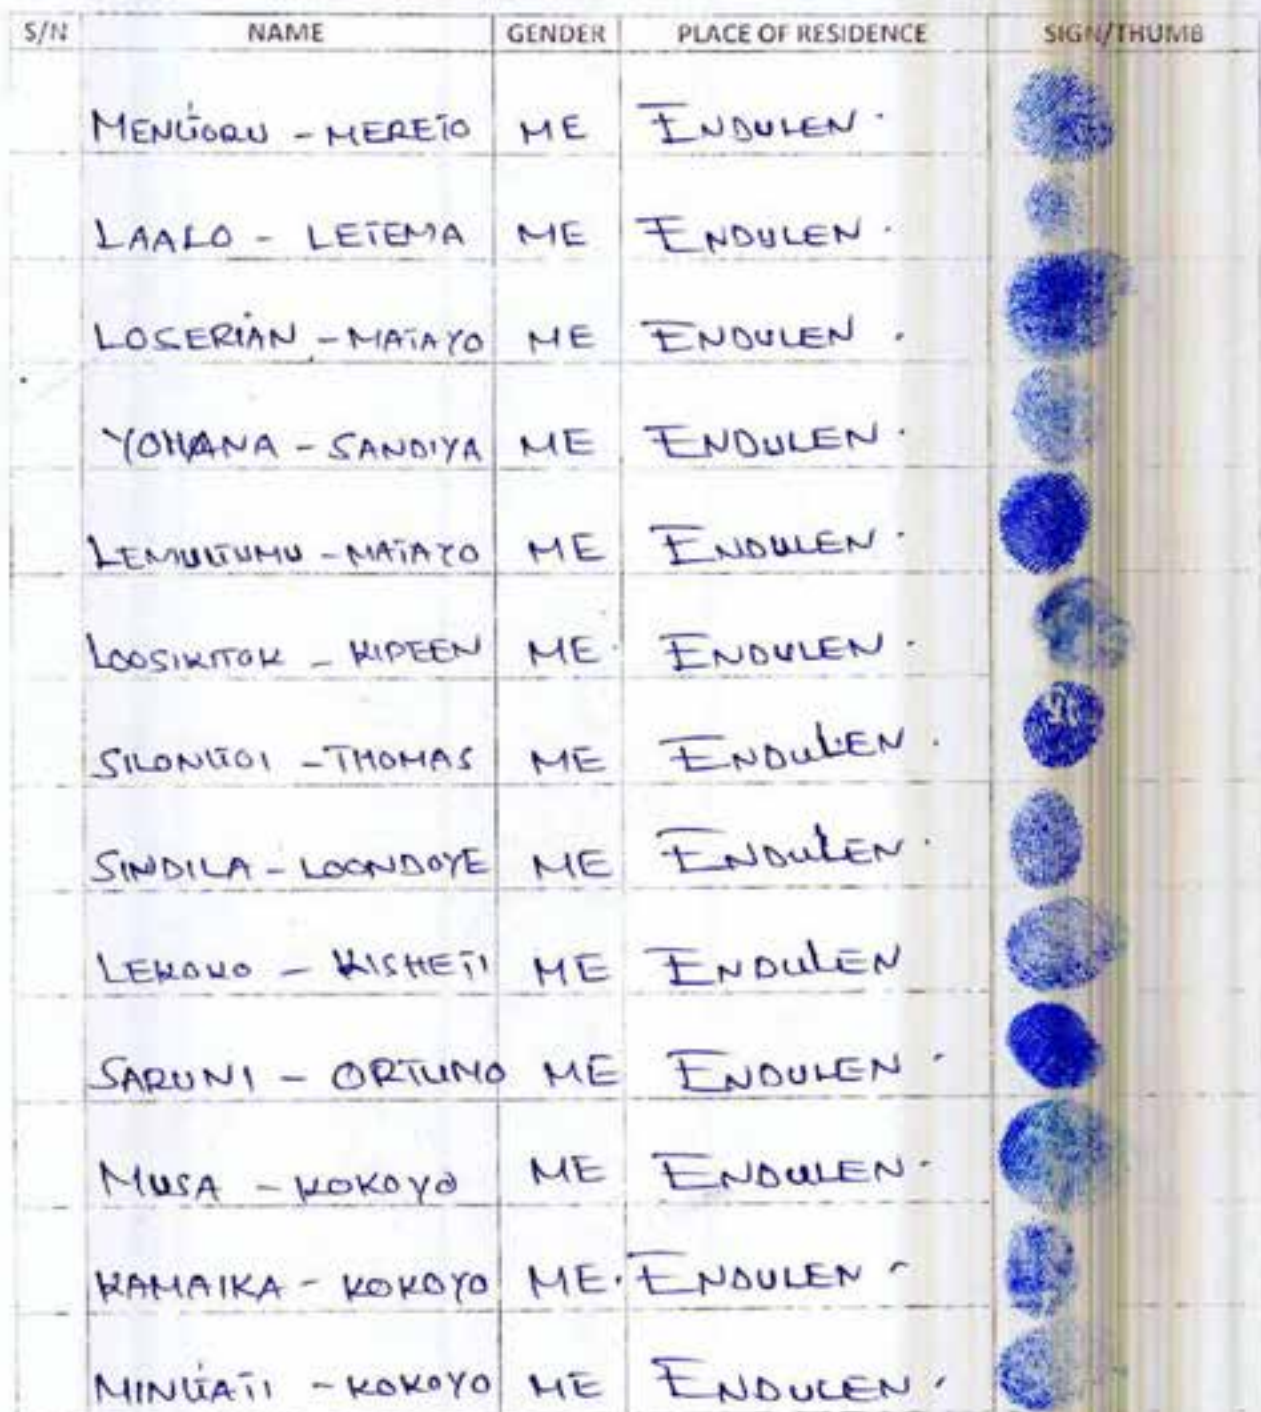 S/N NAME GENDER PLACE OF RESIDENCE SIGN/THUMB
MENG'ORU - MERETO ME ENDULEN.
LAALO - LETEMA ME ENDULEN.
LOSERIAN - MATAYO ME ENDULEN.
YOHANA - SANDIYA ME ENDULEN.
MATAYO ME ENDULEN.
LOOSIKITOK - KIPEEN ME. ENDULEN.
THOMAS ME ENDULEN.
SINDILA - LOONDOYE ME ENDULEN.
LEKOKO - KISHETI ME ENDULEN
SARUNI - ORTUNO ME ENDULEN.
MUSA - KOKOYO ME ENDULEN.
KAMAIKA - KOKOYO ME. ENDULEN -
MING'ATI - KOKOYO ME ENDULEN.